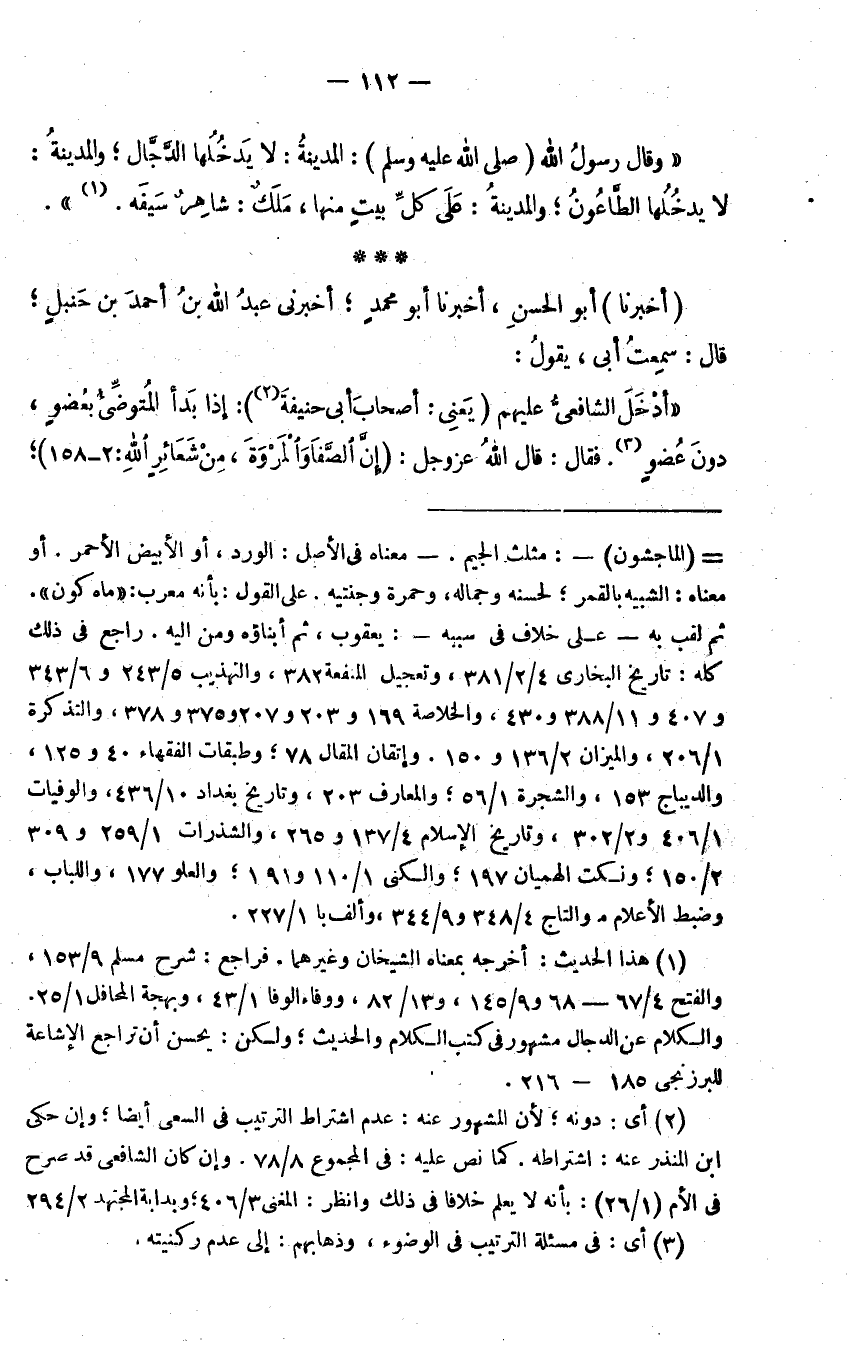 — ١١٢ —
« وقال رسولُ الله ( صلى الله عليه وسلم ) : المدينةُ : لا يَدخُلُها الدَّجَّال ؛ والمدينةُ :
لا يدخُلُها الطَّاعُونُ ؛ والمدينةُ : عَلَى كلِّ بيتٍ منها ، مَلَكٌ : شاهِرٌ سَيفَه . (١) » .
* * *
( أخبرنا ) أبو الحسنِ ، أخبرنا أبو محمدٍ ؛ أخبرنى عبدُ الله بنُ أحمدَ بن حَنبلٍ ؛
قال : سمِعتُ أبى ، يقولُ :
« أدْخَلَ الشافعىُّ عليهم ( يَعنِى : أصحابَ أبى حنيفةَ (٢) ) : إذا بَدأ المُتوضِّئُ بعُضوٍ ،
دونَ عُضوٍ (٣) . فقال : قال اللهُ عزوجل : (إِنَّ ٱلصَّفَا وَٱلْمَرْوَةَ ، مِنْ شَعَائِرِ ٱللهِ : ٢–١٥٨) ؛
= (الماجشون) — : مثلث الجيم . — معناه فى الأصل : الورد ، أو الأبيض الأحمر . أو
معناه : الشبيه بالقمر ؛ لحسنه وجماله، وحمرة وجنتيه . على القول : بأنه معرب: «ماه كون».
ثم لقب به — على خلاف فى سببه — : يعقوب ، ثم أبناؤه ومن اليه . راجع فى ذلك
كله : تاريخ البخارى ٣٨١/٢/٤ ، وتعجيل المنفعة ٣٨٢ ، والتهذيب ٢٤٣/٥ و ٣٤٣/٦
و ٤٠٧ و ٣٨٨/١١ و ٤٣٠ ، والخلاصة ١٦٩ و ٢٠٣ و ٢٠٧ و ٣٧٥ و ٣٧٨ ، والتذكرة
٢٠٦/١ ، والميزان ١٣٦/٢ و ١٥٠ . وإتقان المقال ٧٨ ؛ وطبقات الفقهاء ٤٠ و ١٢٥ ،
والديباج ١٥٣ ، والشجرة ٥٦/١ ؛ والمعارف ٢٠٣ ، وتاريخ بغداد ٤٣٦/١٠، والوفيات
٤٠٦/١ و ٣٠٢/٢ ، وتاريخ الإسلام ١٣٧/٤ و ٢٦٥ ، والشذرات ٢٥٩/١ و ٣٠٩
١٥٠/٢ ؛ ونكت الهميان ١٩٧ ؛ والكنى ١١٠/١ و ١٩١ ؛ والعلو ١٧٧ ، واللباب ،
وضبط الأعلام ، والتاج ٣٤٨/٤ و ٣٤٤/٩ ، وألف با ٢٢٧/١ .
(١) هذا الحديث : أخرجه بمعناه الشيخان وغيرهما . فراجع : شرح مسلم ١٥٣/٩ ،
والفتح ٦٧/٤ — ٦٨ و ١٤٥/٩ ، و ٨٢/١٣ ، ووفاء الوفا ٤٣/١ ، وبهجة المحافل ٢٥/١.
والكلام عن الدجال مشهور فى كتب الكلام والحديث ؛ ولكن : يحسن أن تراجع الإشاعة
للبرزنجى ١٨٥ — ٢١٦ .
(٢) أى : دونه ؛ لأن المشهور عنه : عدم اشتراط الترتيب فى السعى أيضا ؛ وإن حكى
ابن المنذر عنه : اشتراطه . كما نص عليه : فى المجموع ٧٨/٨ . وإن كان الشافعى قد صرح
فى الأم (٢٦/١) : بأنه لا يعلم خلافا فى ذلك وانظر : المغنى ٤٠٦/٣ ؛ وبداية المجتهد ٢٩٤/٢
(٣) أى : فى مسئلة الترتيب فى الوضوء ، وذهابهم : إلى عدم ركنيته .